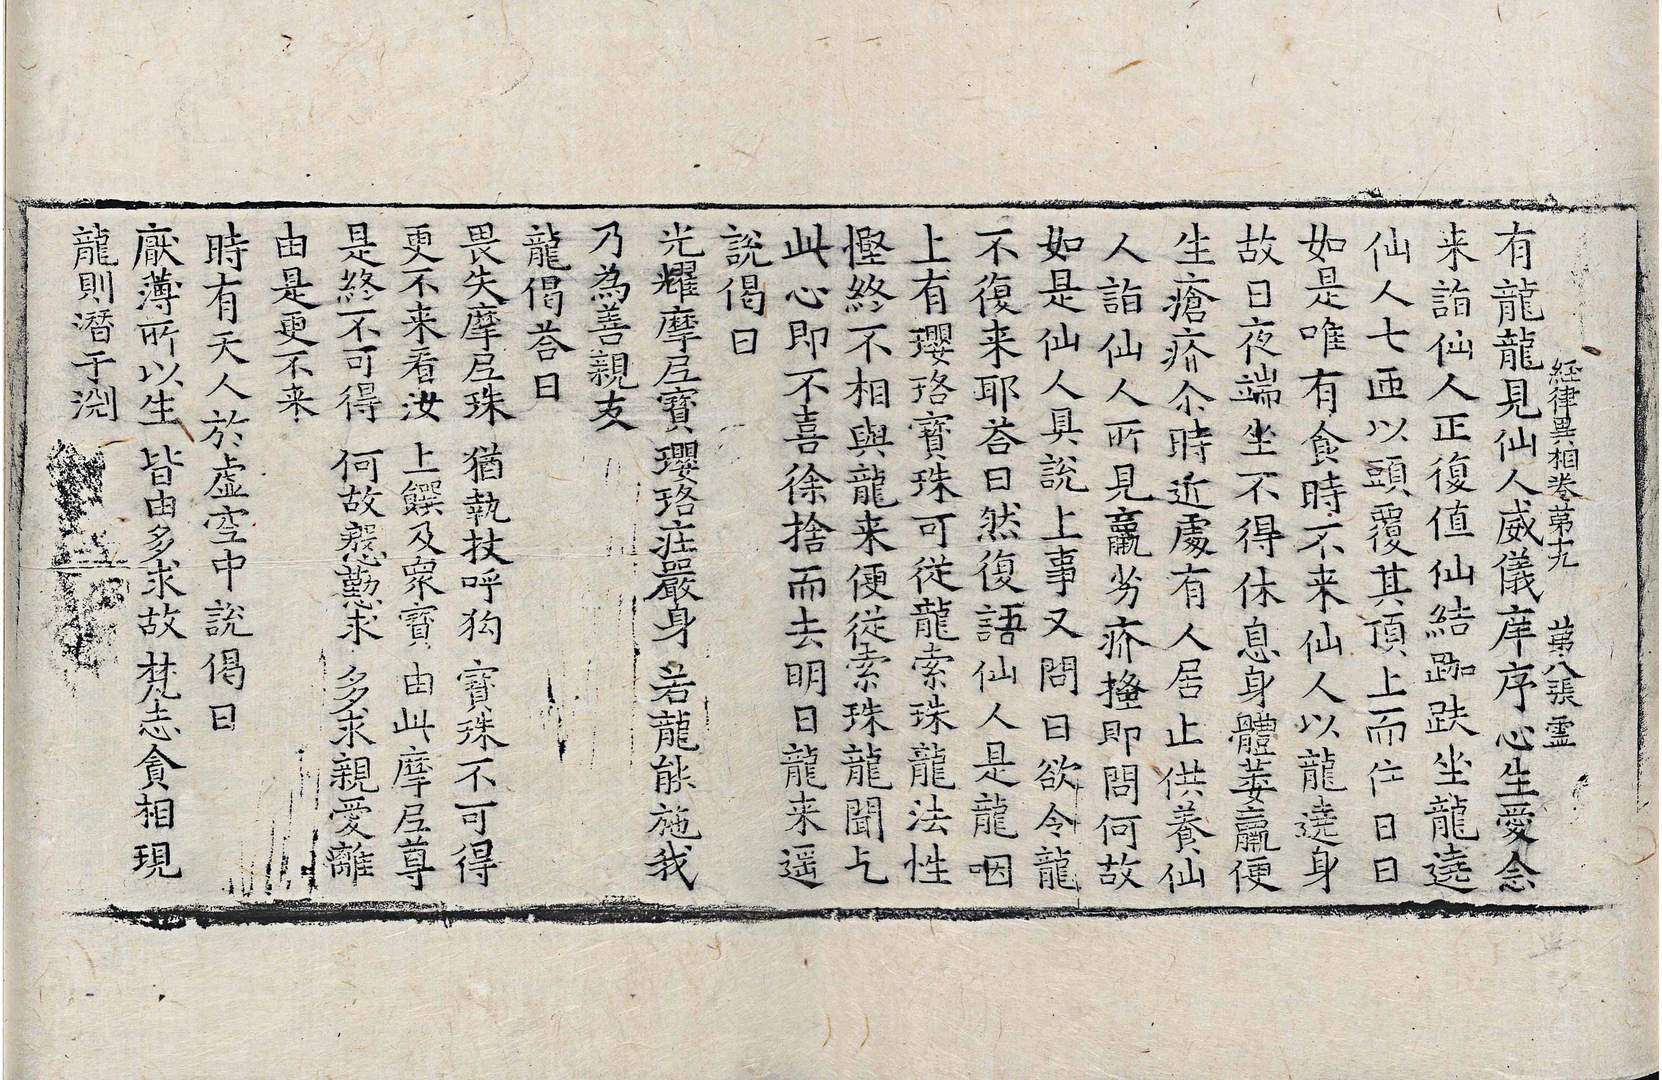 経律異相巻苐十九　苐八張　霊
有龍龍見仙人威儀庠序心生愛念
来詣仙人正復值仙結跏趺坐龍遶
仙人七迊以頭覆其頂上而住日日
如是唯有食時不来仙人以龍遶身
故日夜端坐不得休息身體萎羸便
生瘡疥尒時近處有人居止供養仙
人詣仙人所見羸劣疥搔即問何故
如是仙人具說上事又問曰欲令龍
不復来耶荅曰然復語仙人是龍咽
上有瓔珞寶珠可従龍索珠龍法性
慳終不相與龍来便従索珠龍聞乞
此心即不喜徐捨而去明日龍来遥
說偈曰
光耀摩尼寶　瓔珞莊嚴身　若龍能施我
乃為善親友
龍偈荅曰
畏失摩尼珠　猶執杖呼狗　寶珠不可得
更不来看汝　上饌及衆寶　由此摩尼尊
是終不可得　何故慇懃求　多求親愛離
由是更不来
時有天人於虚空中說偈曰
厭薄所以生　皆由多求故　梵志貪相現
龍則潛于渕